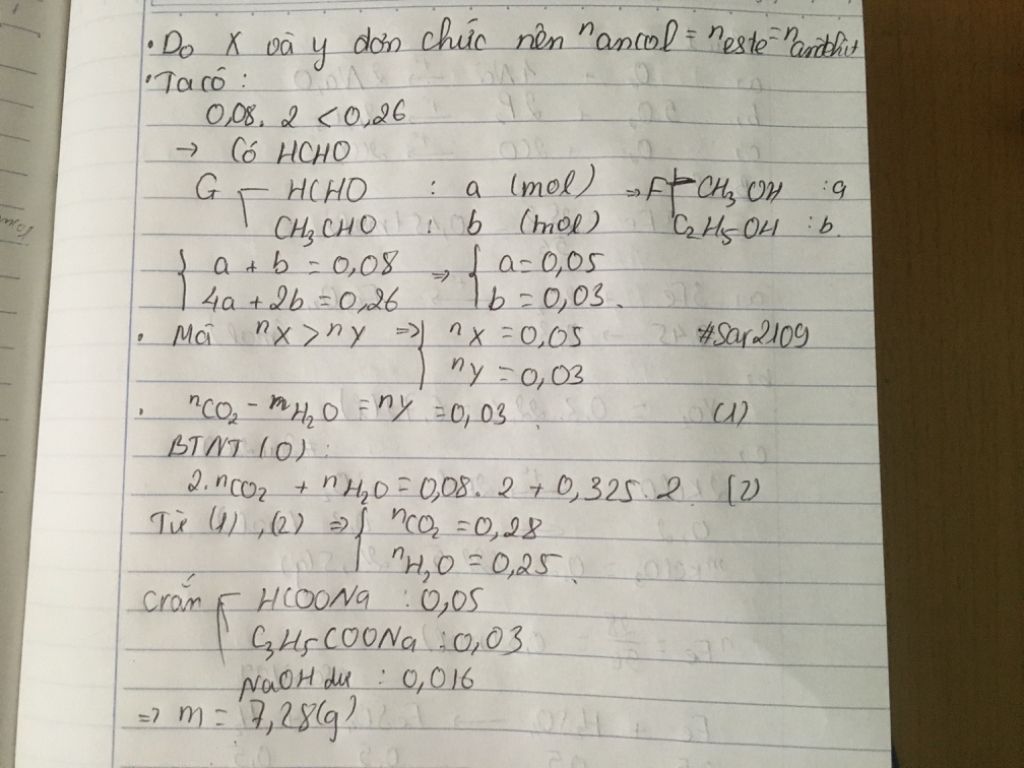 • Do X và y đơn chức nên n ancol = n este = n anđêhit
• Ta có :
0,08. 2 < 0,26
→ Có HCHO
G HCHO : a (mol) ⇒ F CH3OH : a
CH3CHO : b (mol) C2H5OH : b.
{ a + b = 0,08 ⇒ { a = 0,05
4a + 2b = 0,26 b = 0,03.
• Mà nX > ny ⇒ { nX = 0,05 #Sar2109
ny = 0,03
• nCO2 - mH2O = ny = 0,03. (1)
BTNT (O) :
2.nCO2 + nH2O = 0,08. 2 + 0,325. 2 (2)
Từ (1), (2) ⇒ { nCO2 = 0,28
nH2O = 0,25.
Crắn HCOONa : 0,05
C3H5COONa : 0,03
NaOH dư : 0,016
⇒ m = 7,28(g)